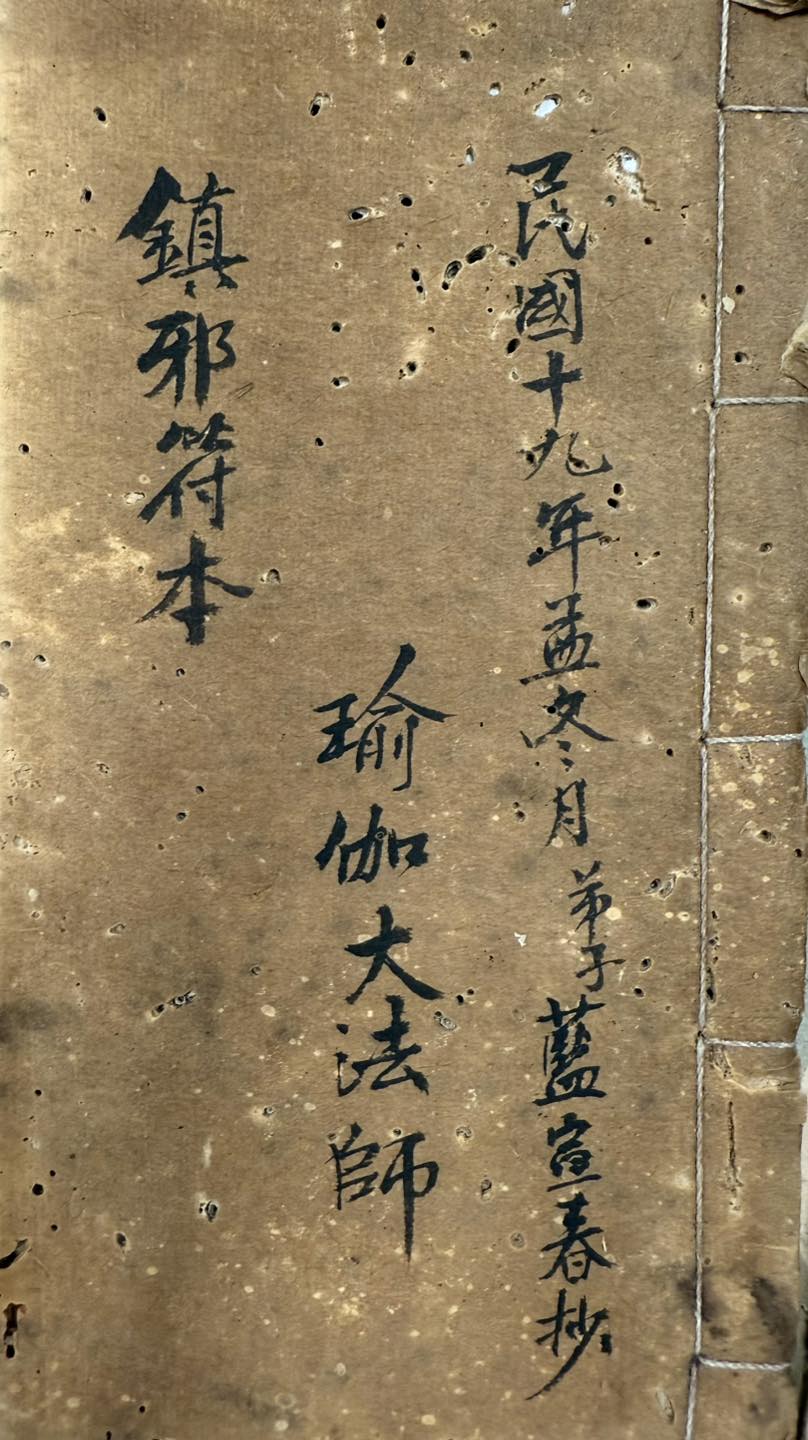 民國十九年孟冬月 弟子藍宣春抄
瑜伽大法師
鎮邪符本